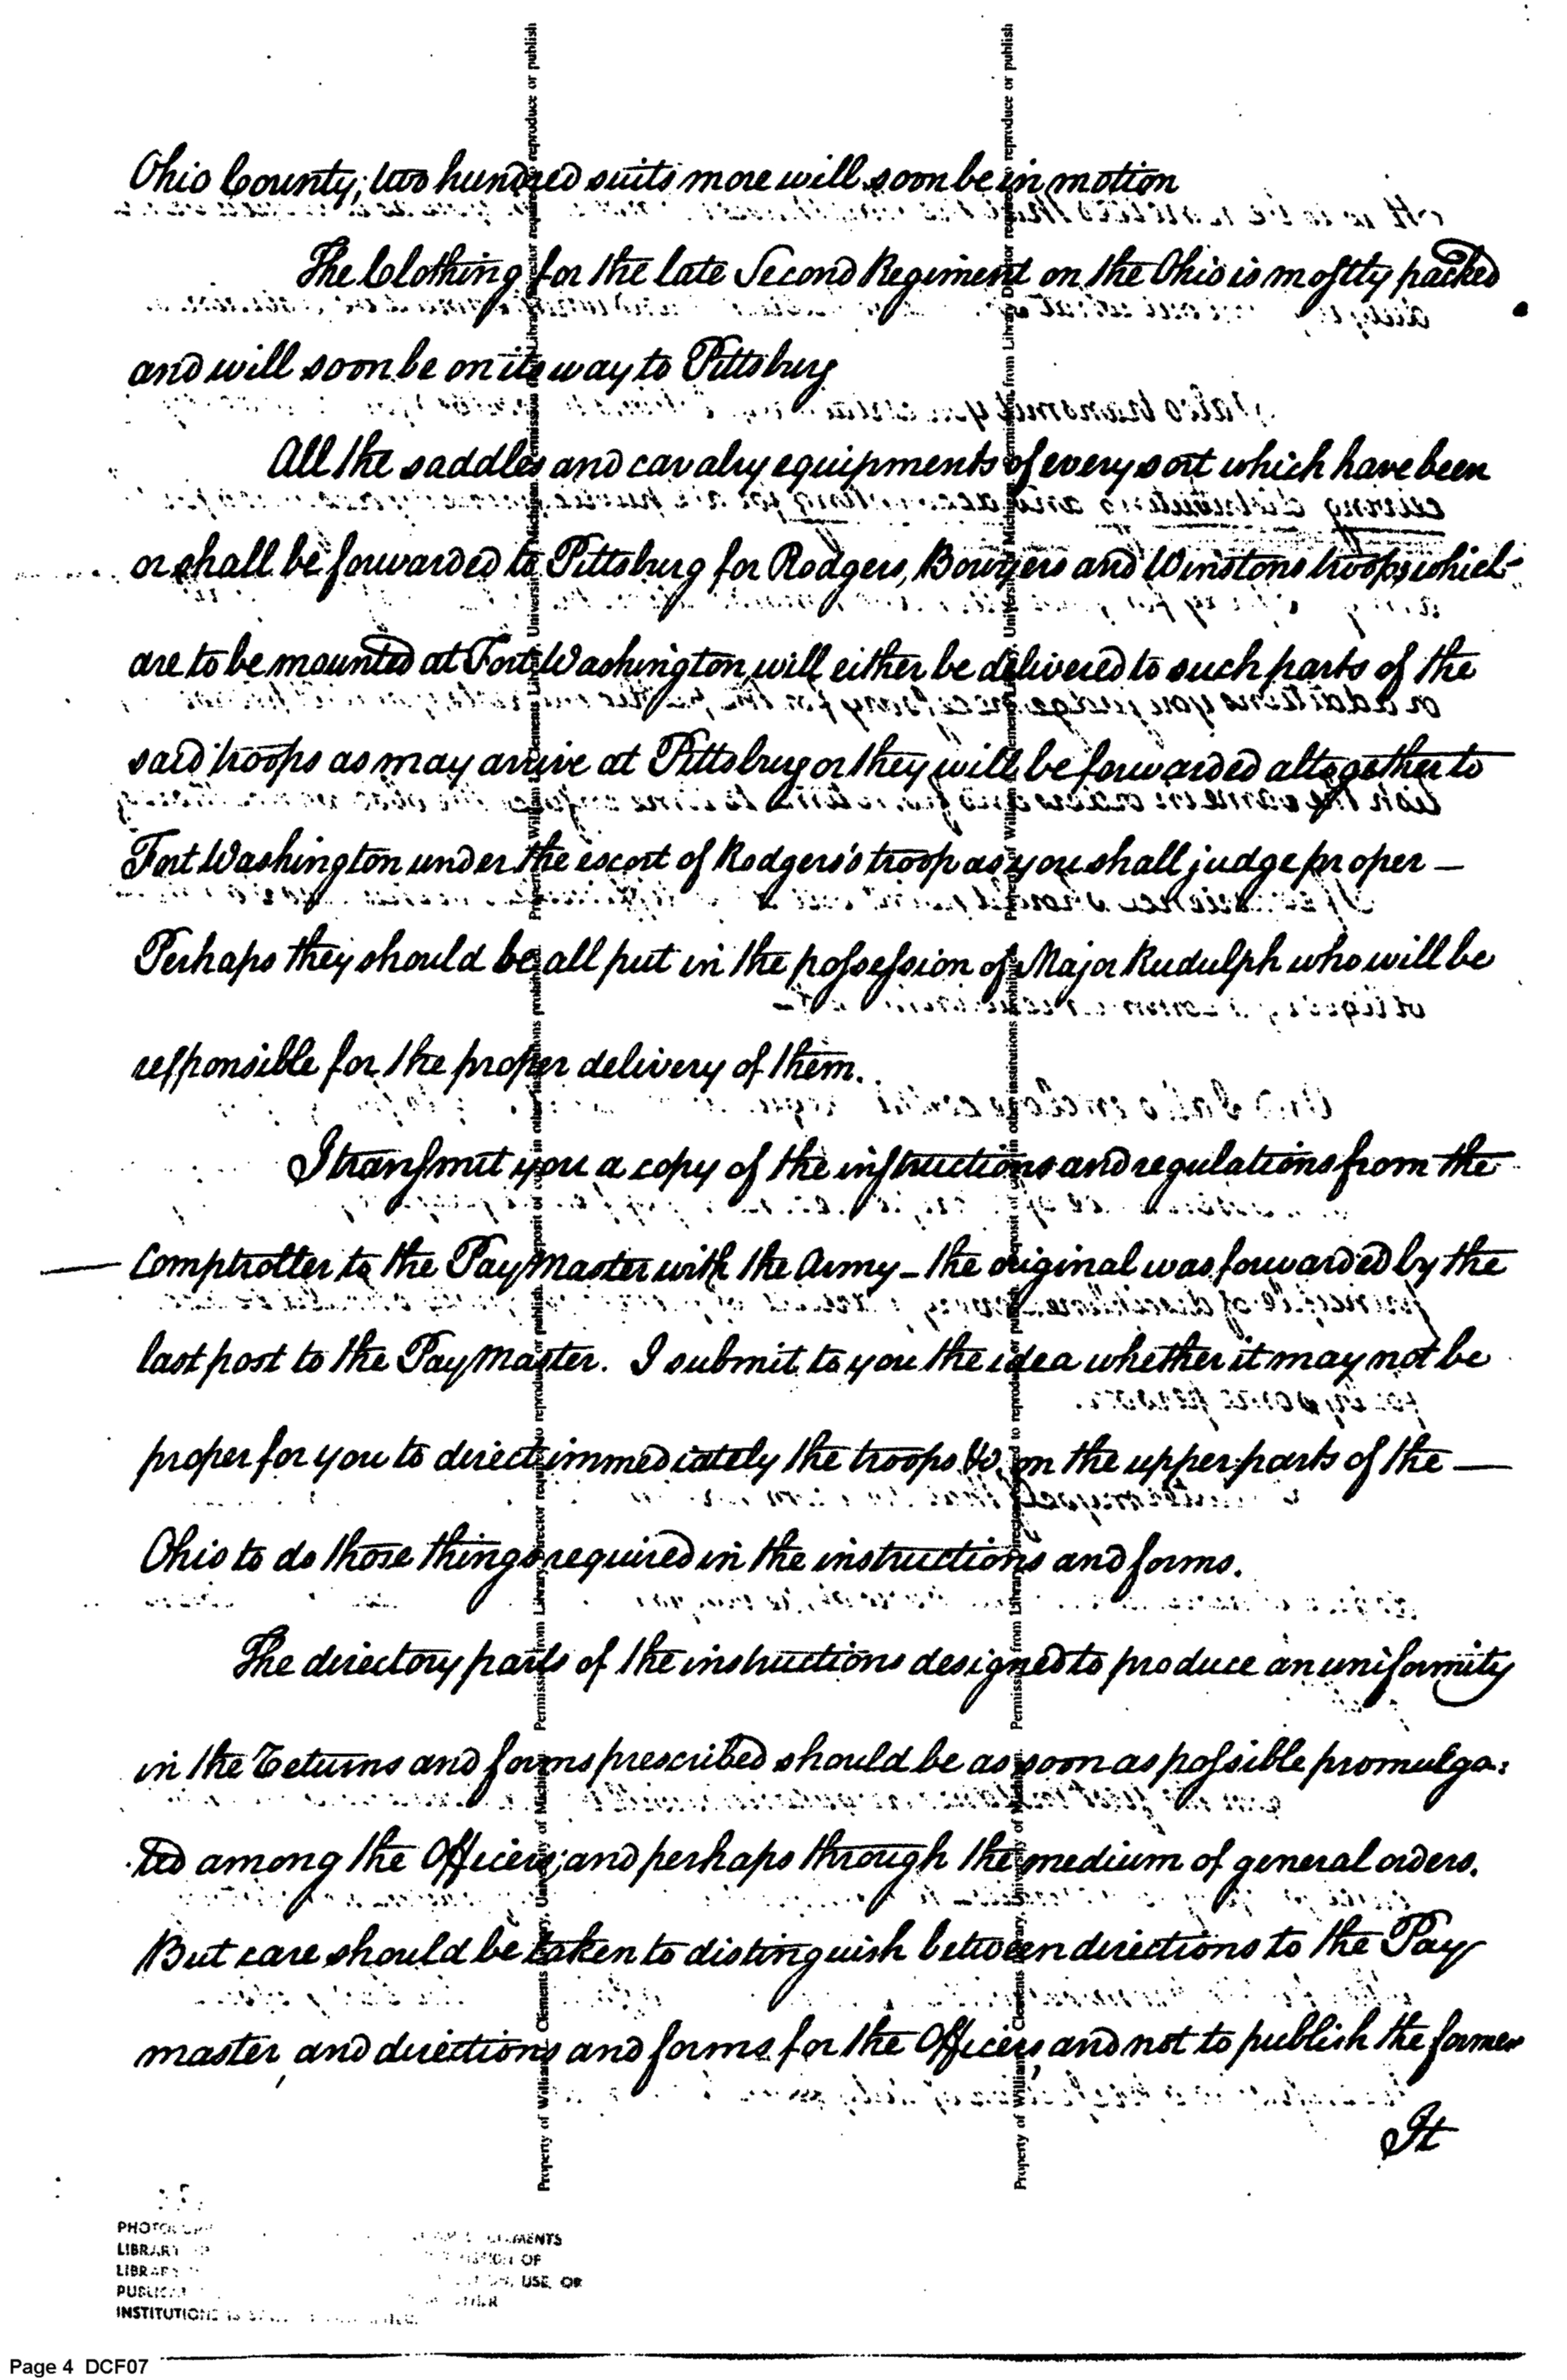 Ohio County; two hundred suits more will soon be in motion
The Clothing for the late Second Regiment on the Ohio is mostly packed
and will soon be on its way to Pittsburg
All the saddles and cavalry equipments of every sort which have been
or shall be forwarded to Pittsburg for Rodgers, Bowyers and Winstons troops which
are to be mounted at Fort Washington, will either be delivered to such parts of the
said troops as may arrive at Pittsburg or they will be forwarded altogether to
Fort Washington under the escort of Rodgers's troop as you shall judge proper —
Perhaps they should be all put in the possession of Major Rudulph who will be
responsible for the proper delivery of them.
I transmit you a copy of the instructions and regulations from the
Comptroller to the PayMaster with the Army – the original was forwarded by the
last post to the PayMaster. I submit to you the idea whether it may not be
proper for you to direct immediately the troops &c. on the upper parts of the —
Ohio to do those things required in the instructions and forms.
The directory parts of the instructions designed to produce an uniformity
in the Returns and forms prescribed should be as soon as possible promulga:
ted among the Officers; and perhaps through the medium of general orders.
But care should be taken to distinguish between directions to the Pay
master, and directions and forms for the Officers, and not to publish the former
It
Property of William L. Clements Library, University of Michigan. Permission from Library Director required to reproduce or publish
Property of William L. Clements Library, University of Michigan. Permission from Library Director required to reproduce or publish
LIBRARY
INSTITUTIONS
CLEMENTS
OF
USE, OR
Page 4 DCF07